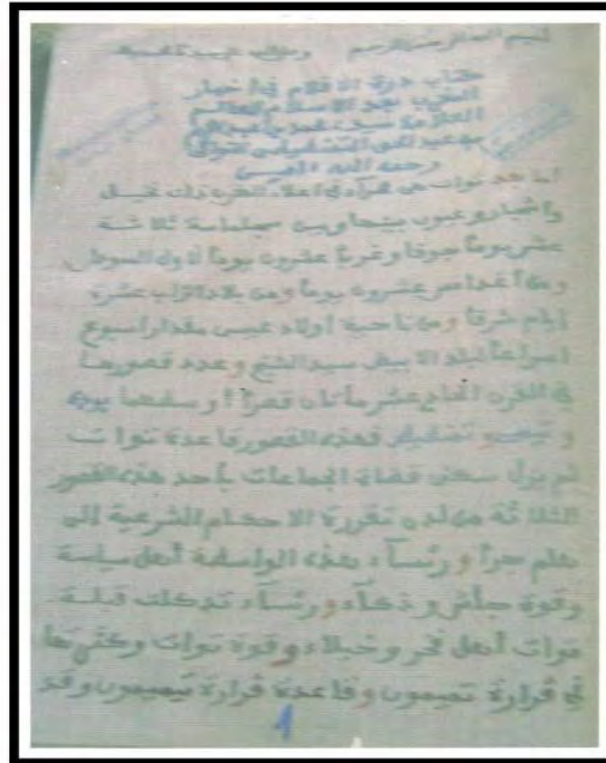 بسم الله الرحمن الرحيم
كتاب درة الاقلام في اخبار
المغرب بعد الاسلام
العلامة سيدي محمد بن عبد الكريم
بن عبد الحق التمنطيطي
رحمه الله
أما بعد توات هي صحراء في أعلا المغرب ذات نخيل
واشجار وعيون بينها وبين سجلماسة ثلاثة
عشر يوما جوفا وغربا عشرون يوما لاول السودان
ومن أغدامس عشرون يوما ومن بلاد الزاب عشرة
أيام شرقا ومن ناحية أولاد عيسى مقدار أسبوع
لبلد الابيض سيد الشيخ وعدد قصورها
في القرن الحادي عشر مائتان قصرا
وتمنطيط فهذه القصور قاعدة توات
لم يزل سكنى قضاة الجماعات بأحد هذه القصور
الثلاثة من لدن تقررة الاحكام الشرعية إلى
هلم جرا ورئساء هذه الواسطة أهل سياسة
وقوة جأش وذكاء ورئساء تدكلت قبلة
توات أهل فخر وخيلاء وقوة توات وكثرتها
في قرارة تميمون وقاعدة قرارة تيميمون وقد
1